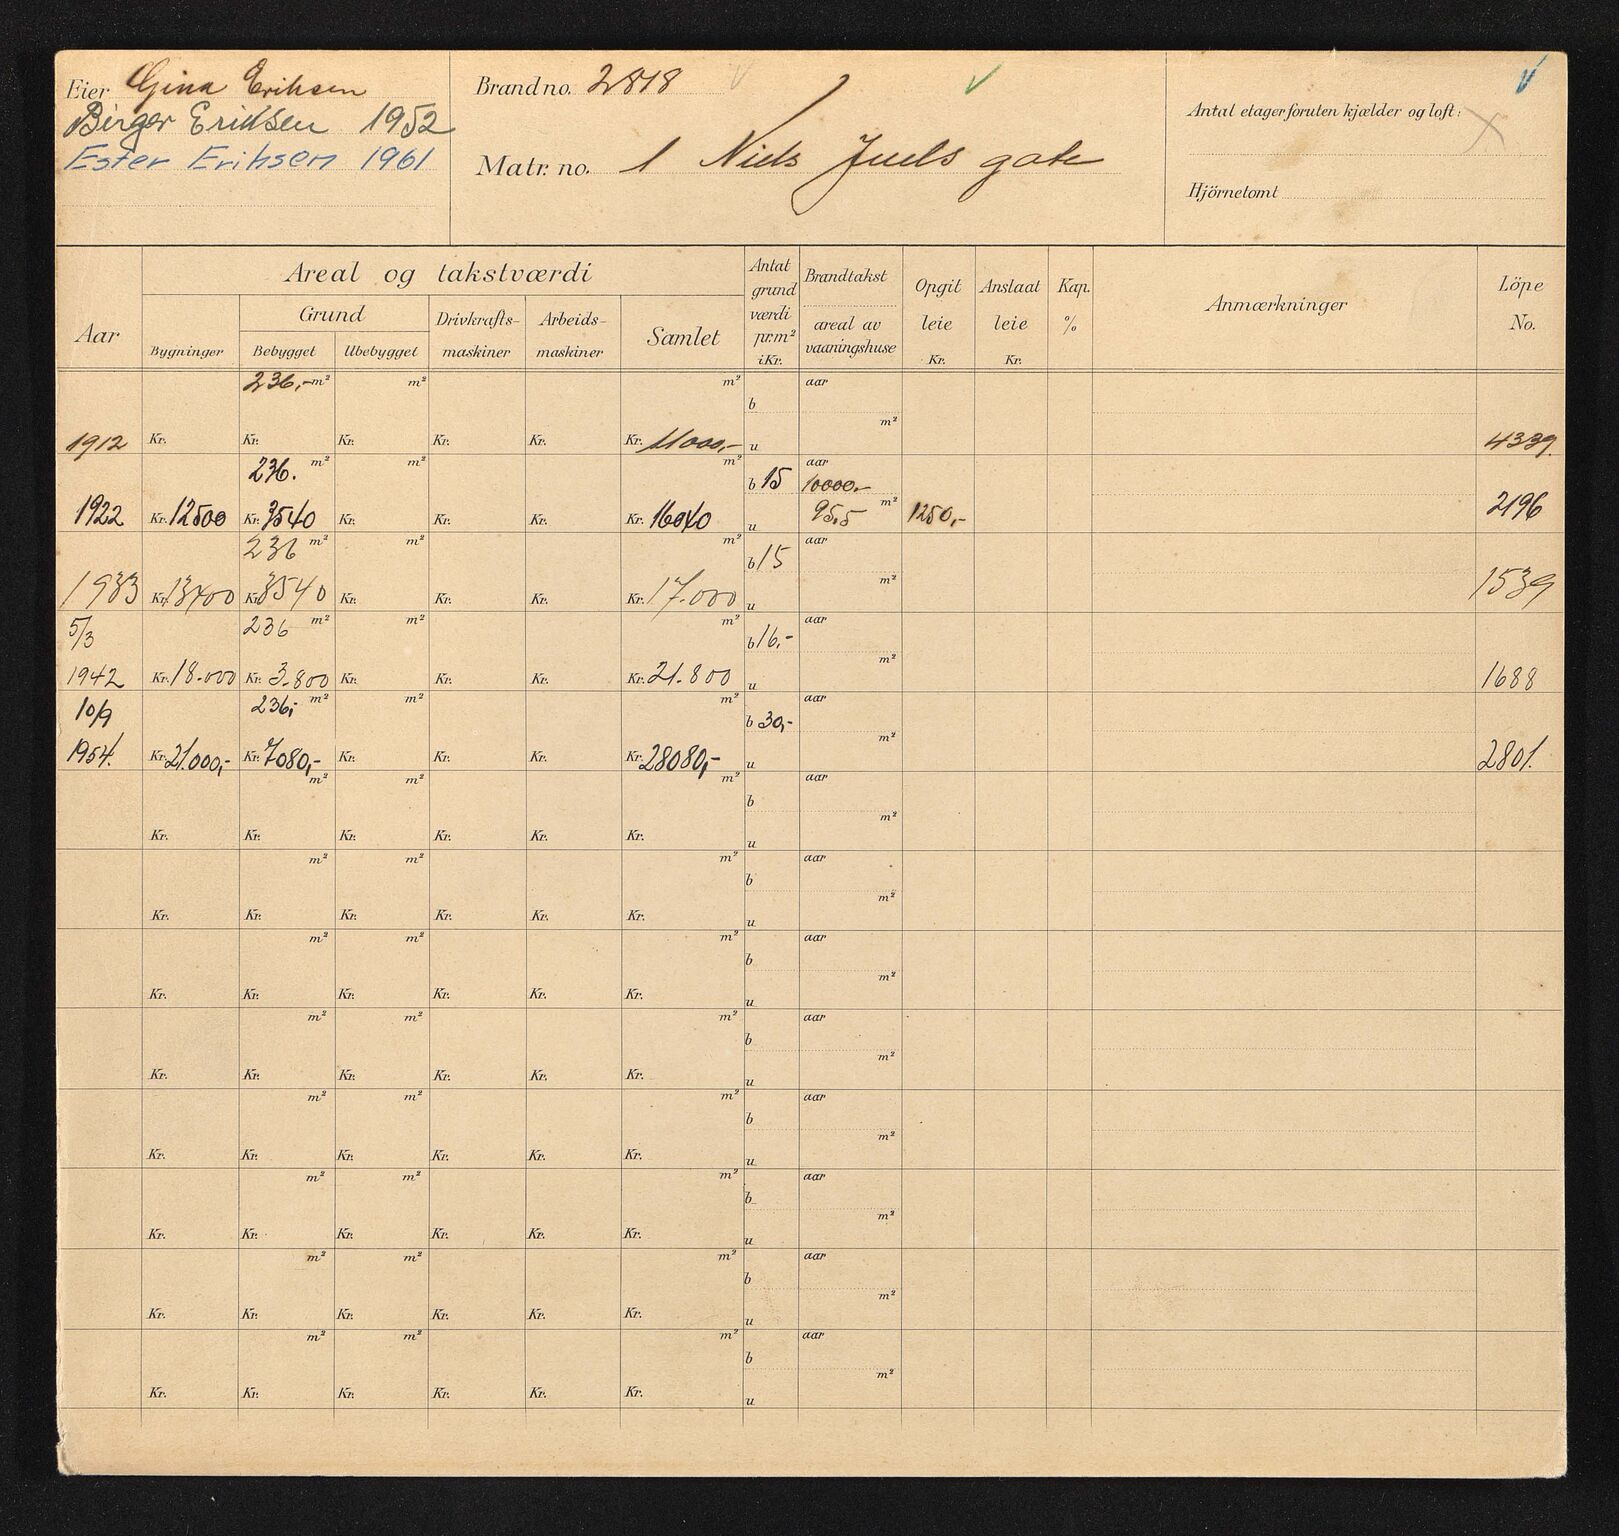 Eier Gina Eriksen
Birger Eriksen 1952
Ester Eriksen 1961
Brand no. 2818
Matr. no. 1 Niels Juels gate
Antal etager foruten kjælder og loft: X
Hjörnetomt
Aar
Areal og takstværdi
Bygninger
Grund
Bebygget Ubebygget
Drivkrafts-
maskiner
Arbeids-
maskiner
Samlet
Antat
grund
værdi
pr. m²
i Kr.
Brandtakst
areal av
vaaningshuse
Opgit
leie
Kr.
Anslaat
leie
Kr.
Kap.
%
Anmærkninger
Löpe
No.
236,- m² m² m² b aar
m²
1912 Kr. Kr. Kr. Kr. Kr. Kr. 11000,- u 4339.
236. m² m² m² b 15 aar
10000.-
1922 Kr. 12500 Kr. 3540 Kr. Kr. Kr. Kr. 16040 u 95,5 m² 1250,- 2196
236 m² m² m² b 15 aar
m²
1933 Kr. 13400 Kr. 3540 Kr. Kr. Kr. Kr. 17.000 u 1539
5/3 236 m² m² m² b 16,- aar
m²
1942 Kr. 18.000 Kr. 3.800 Kr. Kr. Kr. Kr. 21.800 u 1688
10/9 236,- m² m² m² b 30,- aar
m²
1954. Kr. 21.000,- Kr. 7080,- Kr. Kr. Kr. Kr. 28080,- u 2801.
m² m² m² b aar
m²
Kr. Kr. Kr. Kr. Kr. Kr. u
m² m² m² b aar
m²
Kr. Kr. Kr. Kr. Kr. Kr. u
m² m² m² b aar
m²
Kr. Kr. Kr. Kr. Kr. Kr. u
m² m² m² b aar
m²
Kr. Kr. Kr. Kr. Kr. Kr. u
m² m² m² b aar
m²
Kr. Kr. Kr. Kr. Kr. Kr. u
m² m² m² b aar
m²
Kr. Kr. Kr. Kr. Kr. Kr. u
m² m² m² b aar
m²
Kr. Kr. Kr. Kr. Kr. Kr. u
m² m² m² b aar
m²
Kr. Kr. Kr. Kr. Kr. Kr. u